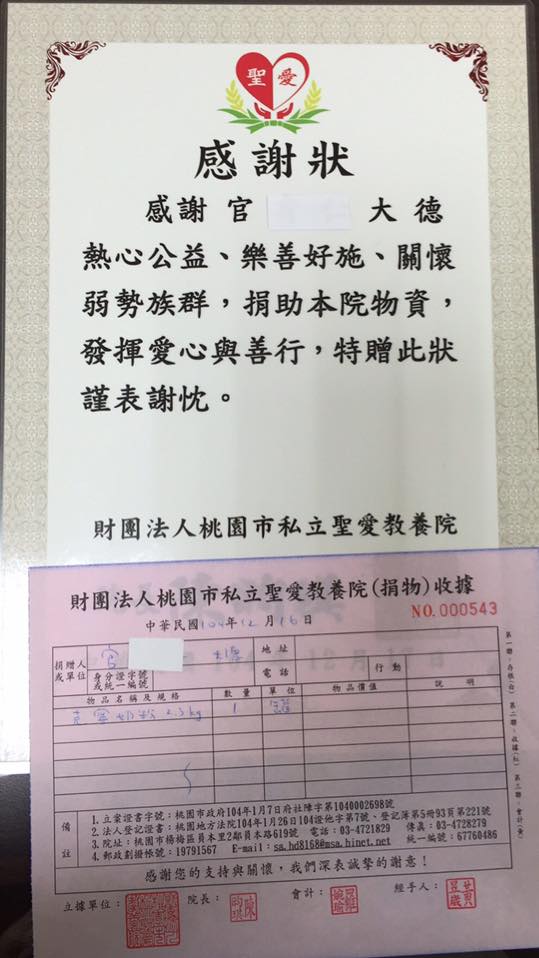 聖 愛
感謝狀
感謝官 大德
熱心公益、樂善好施、關懷
弱勢族群，捐助本院物資，
發揮愛心與善行，特贈此狀
謹表謝忱。
財團法人桃園市私立聖愛教養院
財團法人桃園市私立聖愛教養院(捐物)收據
NO.000543
中華民國104年12月16日
捐贈人或單位 官 地址
身分證字號或統一編號 電話 行動
物品名稱及規格 數量 單位 物品價值 說明
克寧奶粉 2.3kg 1 罐
備註
1.立案證書字號：桃園市政府104年1月7日府社障字第1040002698號
2.法人登記證書：桃園地方法院104年1月26日104證他字第7號、登記簿第5冊93頁第221號
3.院址：桃園市楊梅區員本里2鄰員本路619號 電話：03-4721829 傳真：03-4728279
4.郵政劃撥帳號：19791567 E-mail：sa.hd8168@msa.hinet.net 統一編號：67760486
感謝您的支持與關懷，我們深表誠摯的謝意！
立據單位： 院長： 會計： 經手人：
第一聯：存根(白) 第二聯：收據(紅) 第三聯：會計(黃)